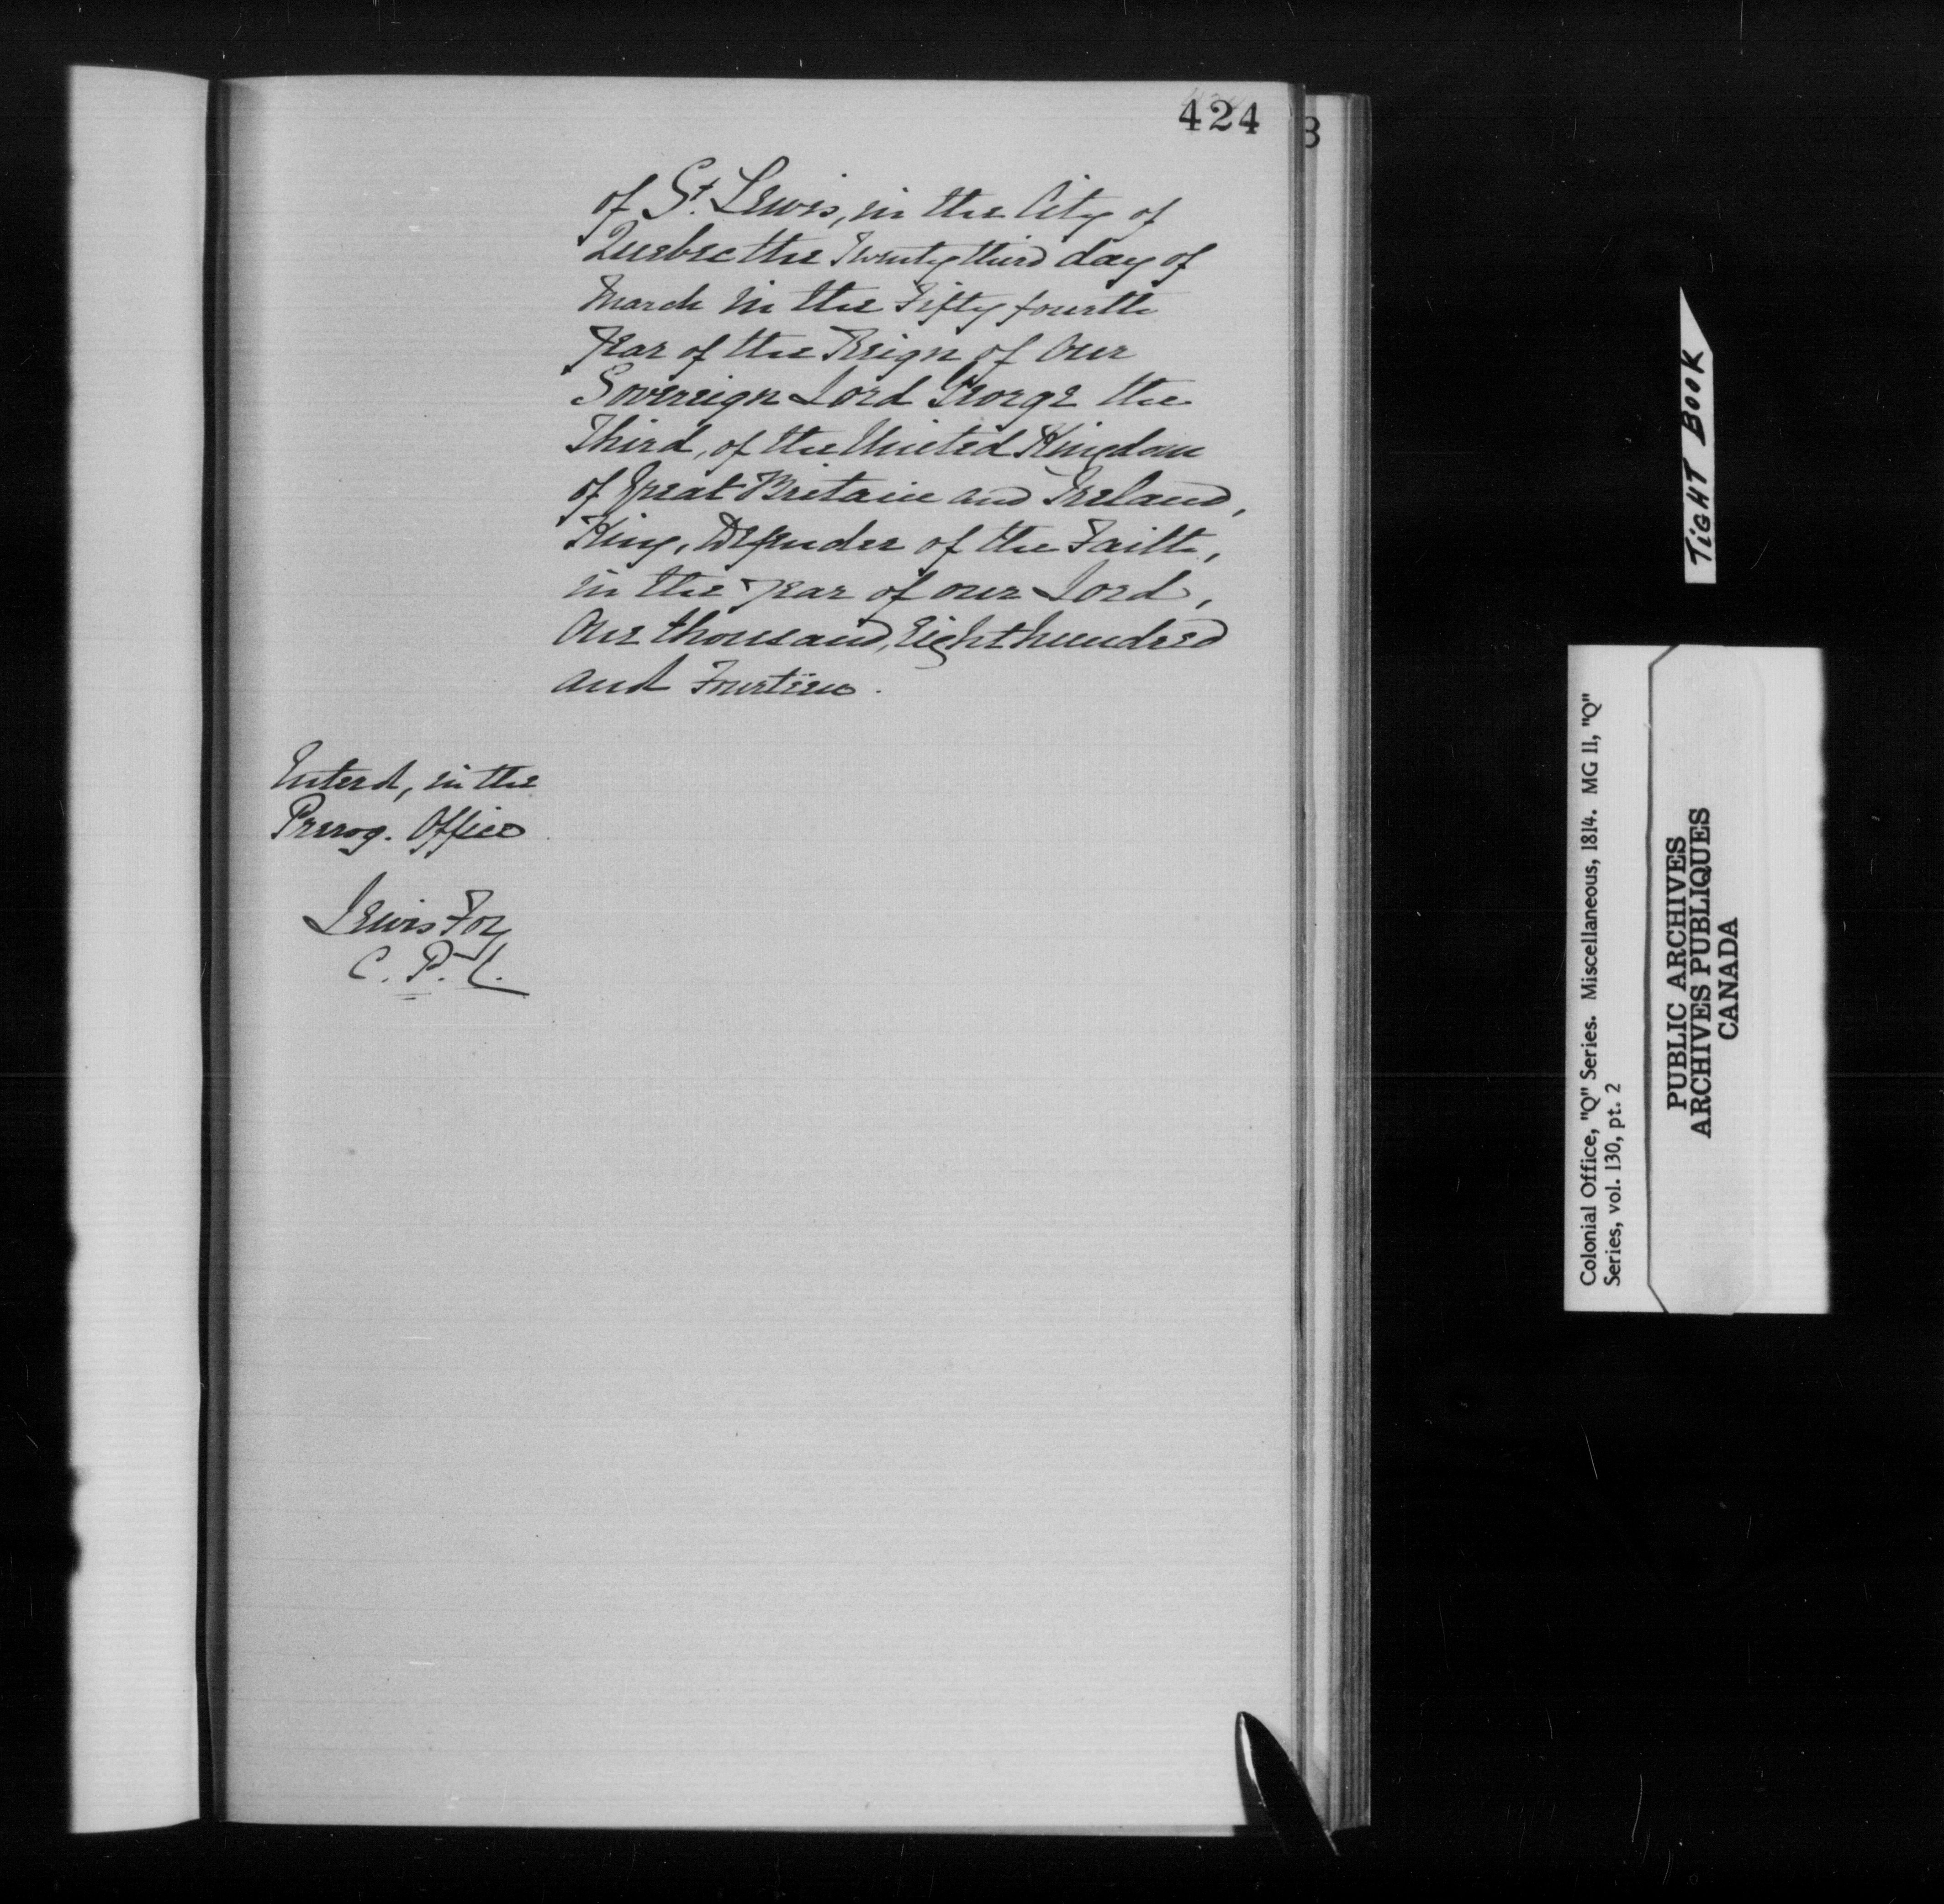 424
of St. Lewis, in the City of
Quebec the Twenty third day of
March in the Fifty fourth
Year of the Reign of Our
Sovereign Lord George the
Third, of the United Kingdom
of Great Britain and Ireland,
King, Defender of the Faith,
in the Year of our Lord,
One thousand, Eight hundred
and Fourteen.
Enterd, in the
Prerog. Office
Lewis Foy
TIGHT BOOK
Colonial Office, "Q" Series. Miscellaneous, 1814. MG 11, "Q"
Series, vol. 130, pt. 2
PUBLIC ARCHIVES
ARCHIVES PUBLIQUES
CANADA